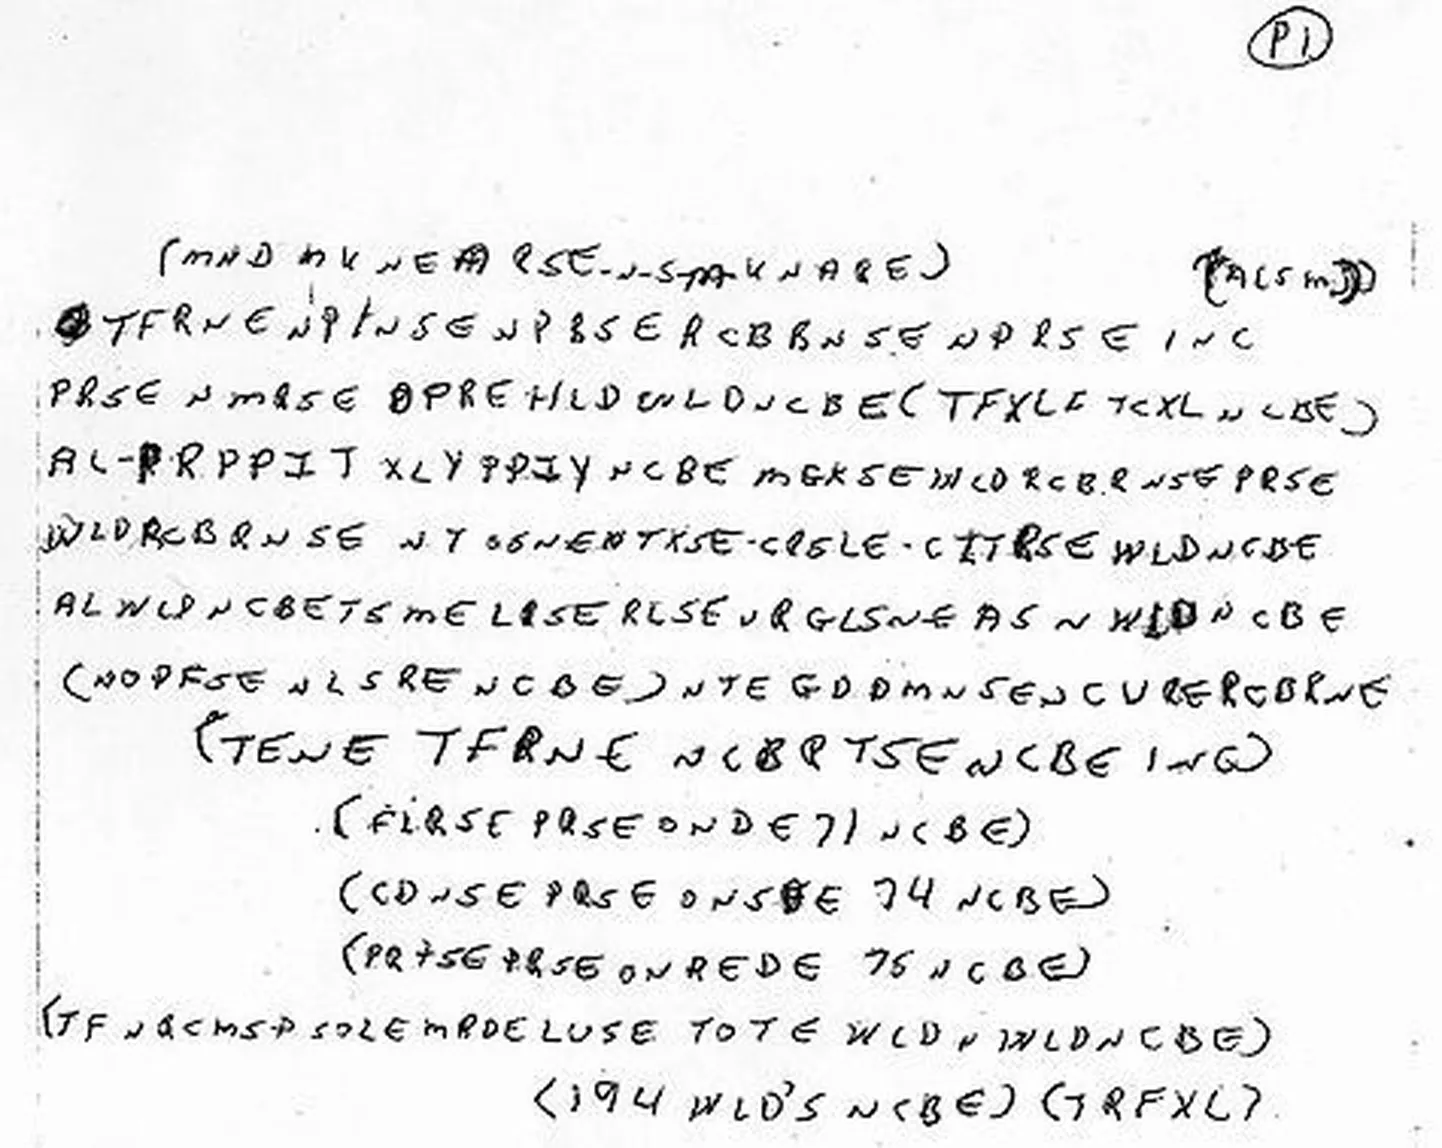 P1
(MND MKNEARSE-N-S-M-KNARE) (ACSM)
TFRNENPINSENPBSERCBBNSENPRSEINC
PRSENMRSEOPREHLDWLDNCBE(TFXLFTCXLNCBE)
AL-PRPPIT XLYPPIYNCBE MGKSEWLDRCBRNSEPRSE
WLDRCBRNSE NTOSNENTXSE-CRSLE-CITRSEWLDNCBE
ALWLPNCBETSMELRSERLSEURGLSNEASNWLDNCBE
(NOPFSENLSRENCBE)NTEGDDMNSENCURERCBRNE
(TENE TFRNE NCBRTSENCBEINC)
(FLRSE PRSE ONDE 71 NCBE)
(CDNSE PRSE ONSDE 74 NCBE)
(PRTSE PRSE ONREDE 75 NCBE)
(TFNRCMSP SOLEMRDELUSE TOTE WLDN WLDNCBE)
(194 WLD'S NCBE)(TRFXL)